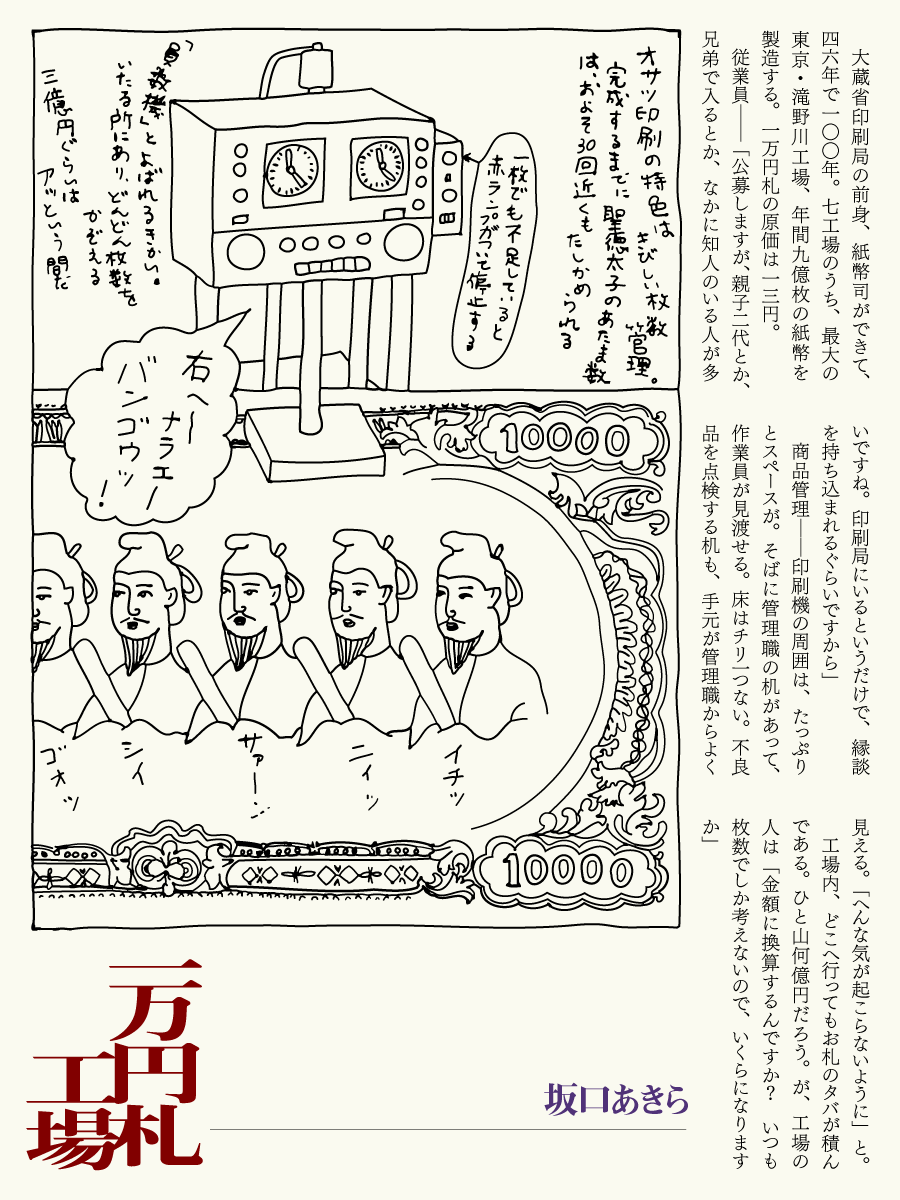 大蔵省印刷局の前身、紙幣司ができて、
四六年で一〇〇年。七工場のうち、最大の
東京・滝野川工場、年間九億枚の紙幣を
製造する。一万円札の原価は一三円。
従業員――「公募しますが、親子二代とか、
兄弟で入るとか、なかに知人のいる人が多
いですね。印刷局にいるというだけで、縁談
を持ち込まれるぐらいですから」
商品管理――印刷機の周囲は、たっぷり
とスペースが。そばに管理職の机があって、
作業員が見渡せる。床はチリ一つない。不良
品を点検する机も、手元が管理職からよく
見える。「へんな気が起こらないように」と。
工場内、どこへ行ってもお札のタバが積ん
である。ひと山何億円だろう。が、工場の
人は「金額に換算するんですか？　いつも
枚数でしか考えないので、いくらになります
か」
オサツ印刷の特色は
きびしい枚数
管理。
完成するまでに聖徳太子のあたま数
は、およそ30回近くも
たしかめ
られる
一枚でも不足していると
赤ランプがついて停止する
「員数機」とよばれるきかい。
いたる所にあり、どんどん枚数を
かぞえる
三億円ぐらいは
アッという間だ
右へ〜
ナラエー
バンゴウッ！
10000
イチッ
ニィッ
サァーン
シイ
ゴオッ
10000
一万円札
工場
坂口あきら